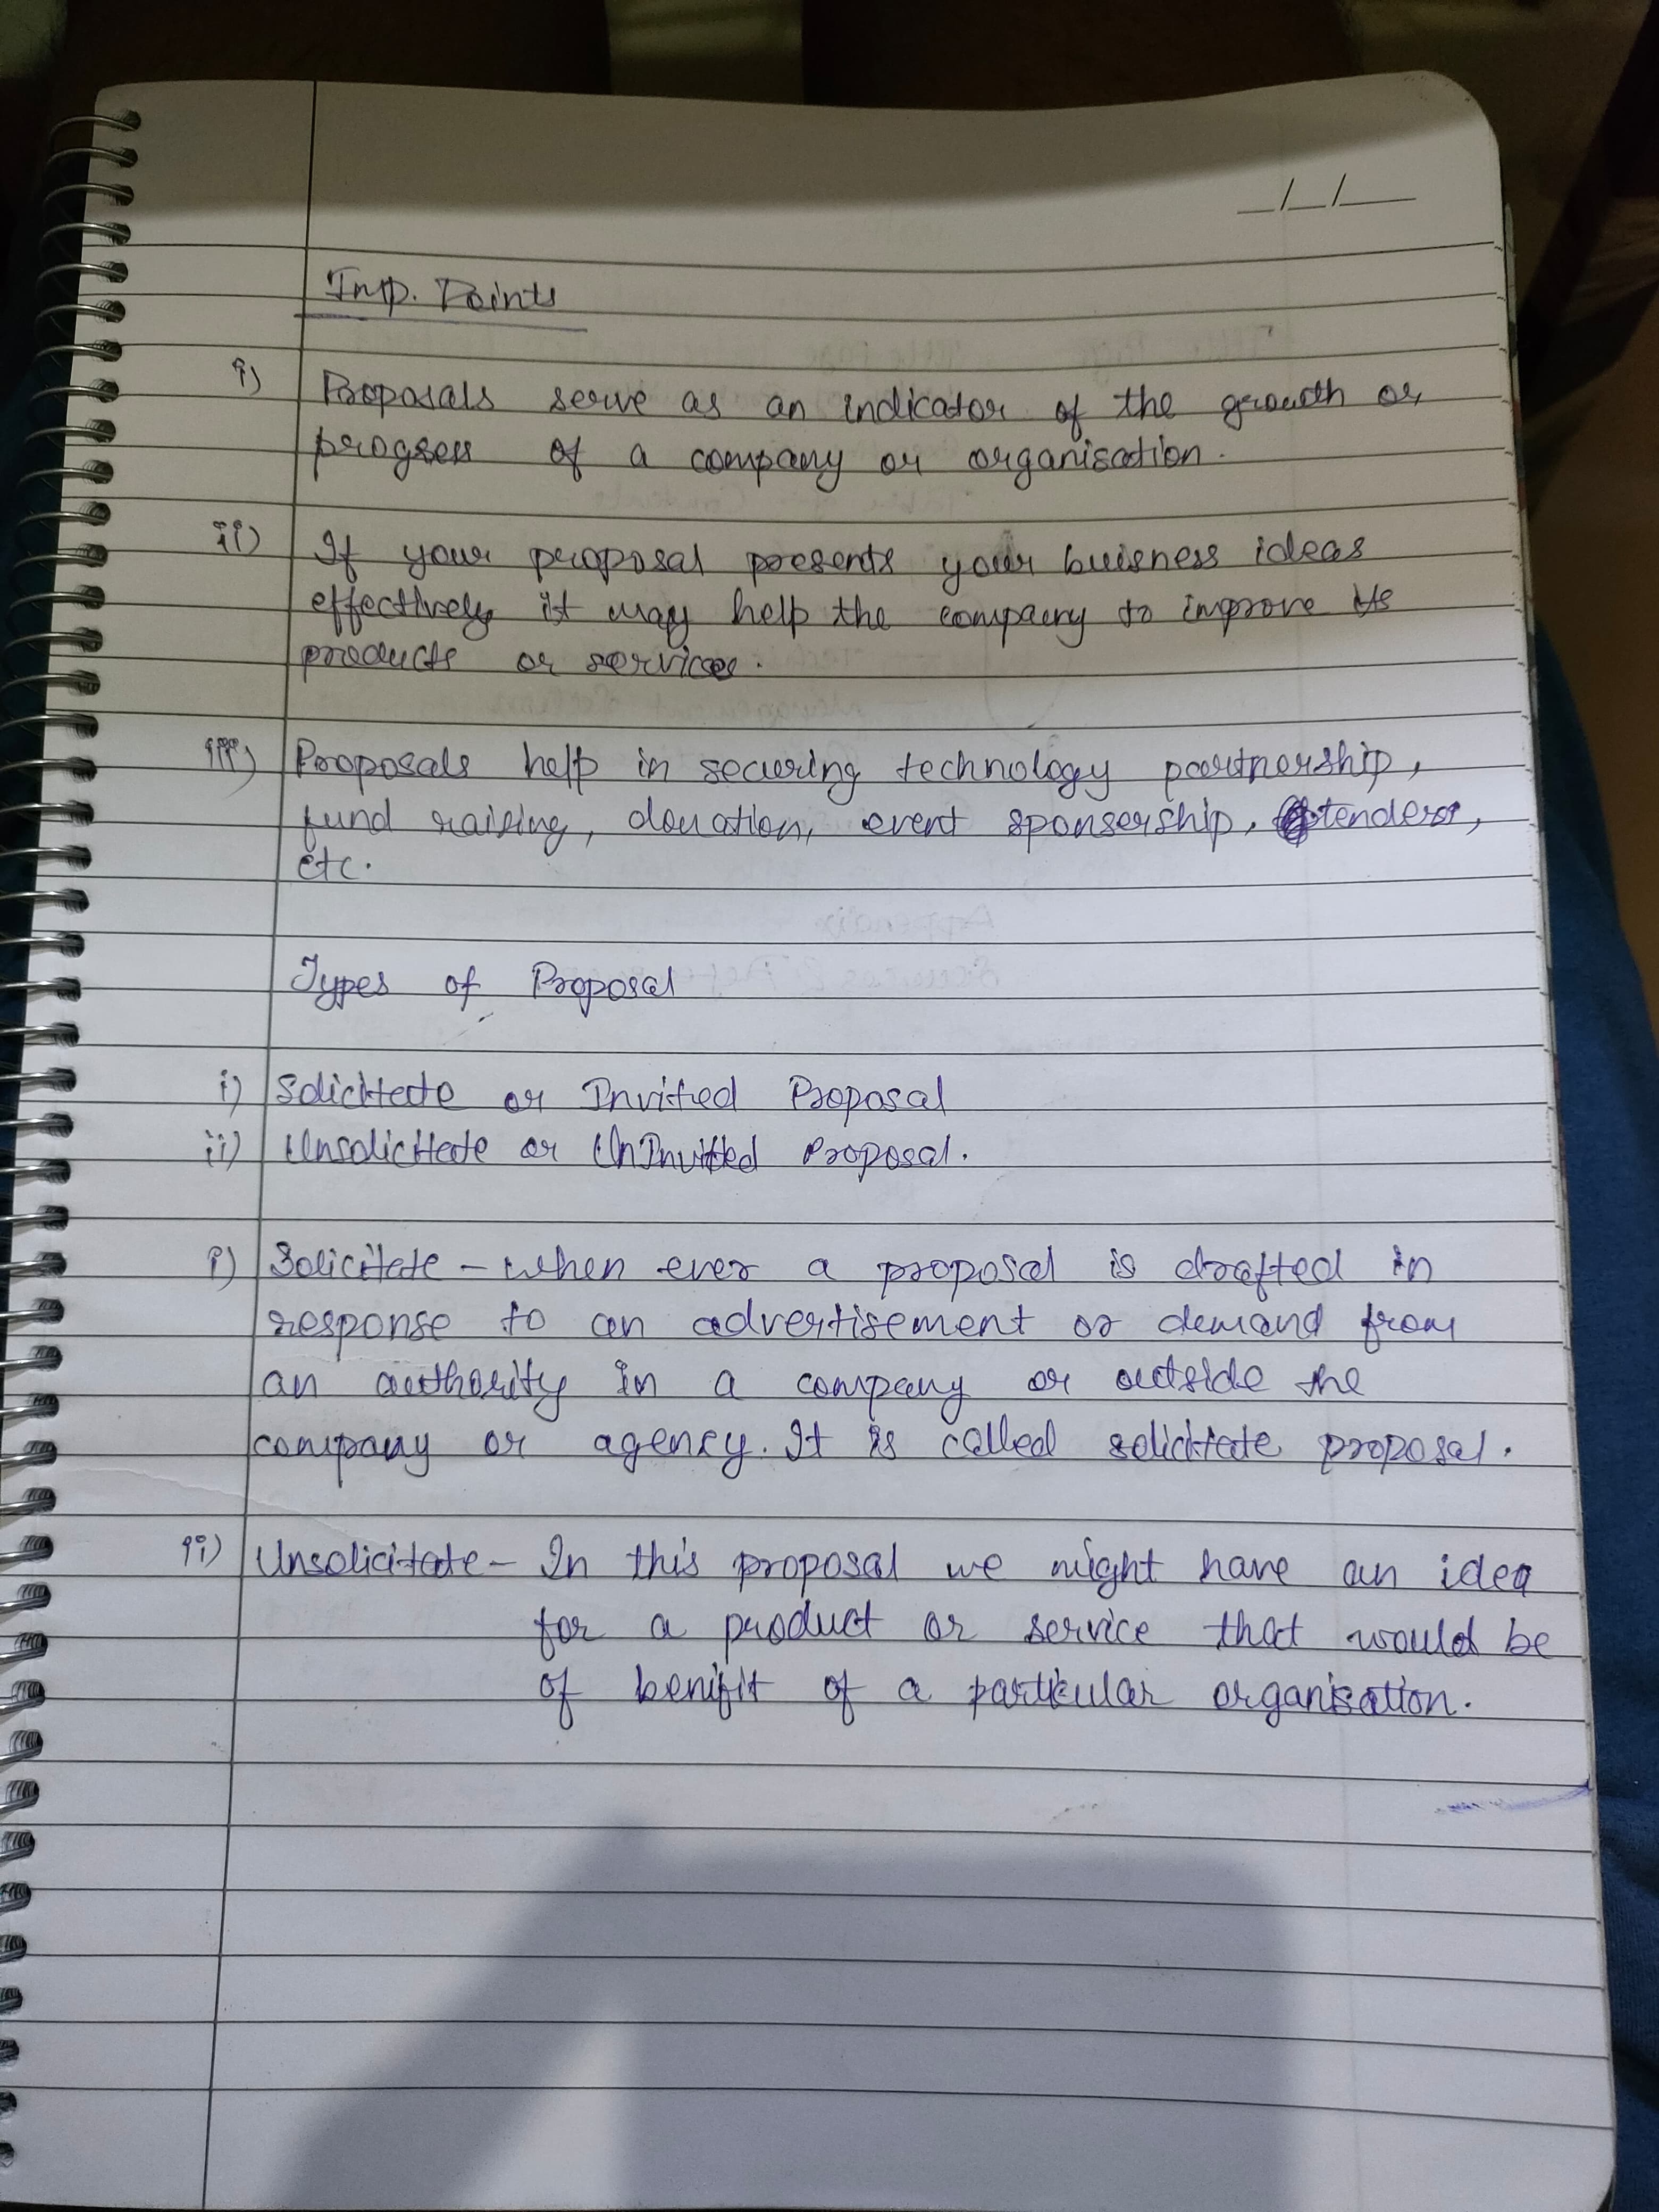 _/_/__
Imp. Points
i) Proposals serve as an indicator of the growth or
progress of a company or organisation.
ii) If your proposal presents your buisness ideas
effectively it may help the company to improve its
products or services.
iii) Proposals help in securing technology partnership,
fund raising, donation, event sponsership, tenders,
etc.
Types of Proposal
i) Solicitate or Invited Proposal
ii) Unsolicitate or UnInvited Proposal.
i) Solicitate - when ever a proposal is drafted in
response to an advertisement or demand from
an authority in a company or outside the
company or agency. It is called solicitate proposal.
ii) Unsolicitate - In this proposal we might have an idea
for a product or service that would be
of benifit of a particular organisation.